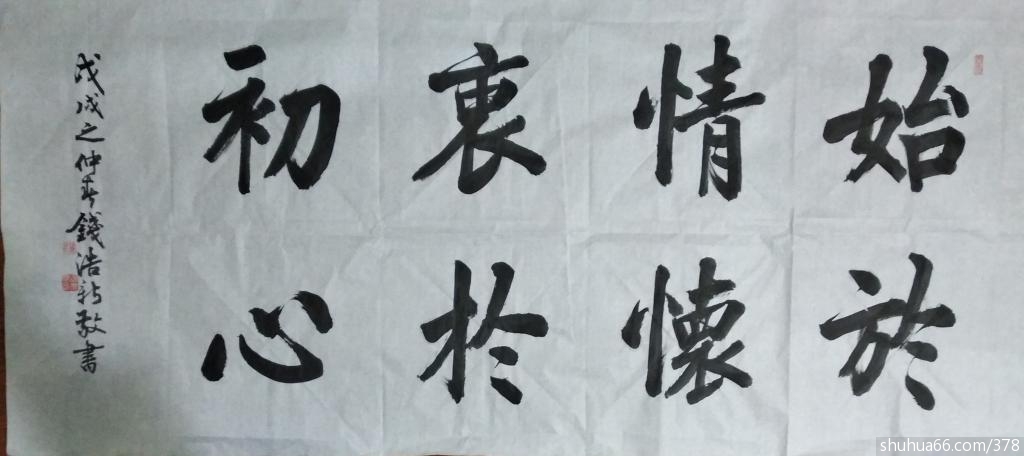 始於
情懷
衷於
初心
戊戌之仲春錢浩新敬書
shuhua66.com/378